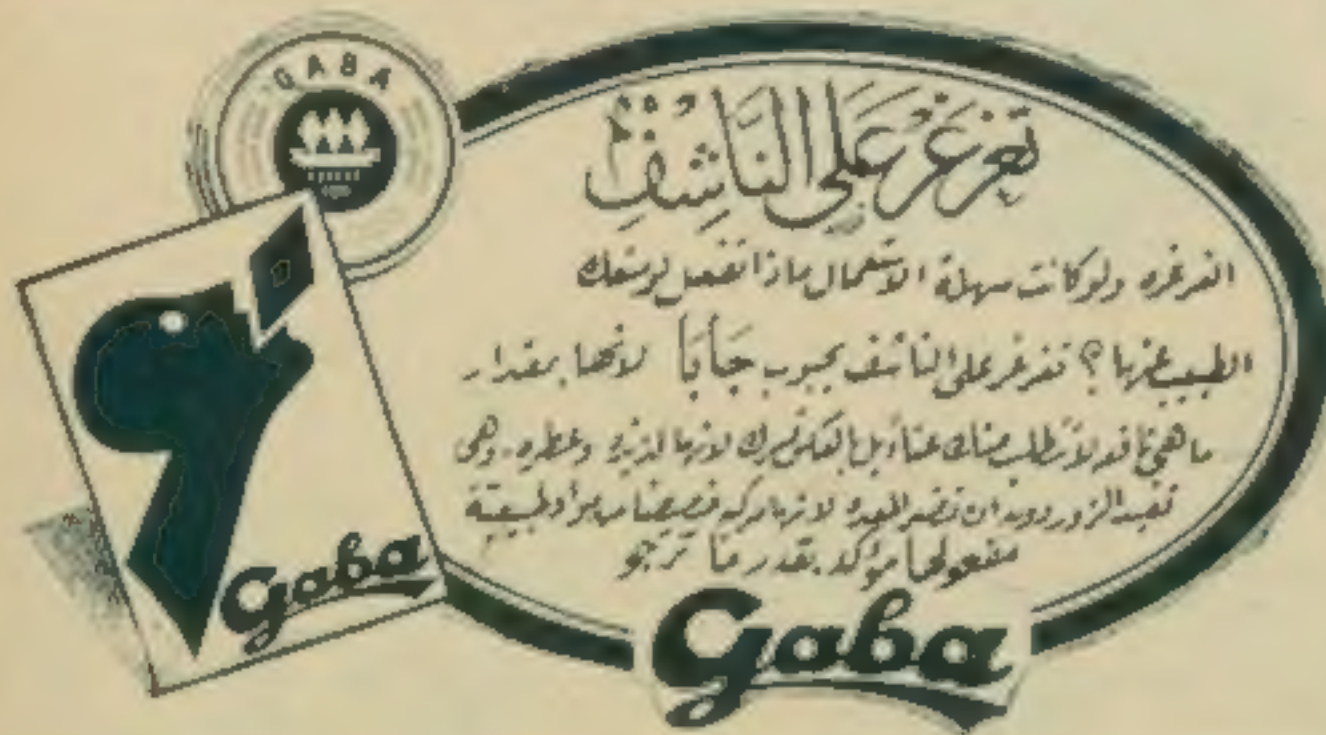 GABA
تَغَرْغَرْ عَلَى النَّاشِفْ
الغرغره ولو كانت سهلة الاستعمال ماذا تفعل لو منعك
الطبيب عنها؟ تغرغر على الناشف بحبوب جَابَا لانها بمقدار
ما هي نافعه لا تطلب منك عناء بل بالعكس تسرك لانها لذيذه وعطره. وهي
تفيد الزور دون ان تضر المعدة لانها مركبه من مواد طبيعية
مفعولها مؤكد بقدر ما ترجو
Gaba
Gaba